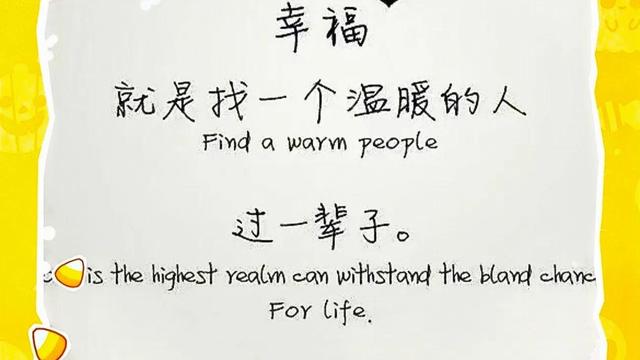 幸福
就是找一个温暖的人
Find a warm people
过一辈子。
is the highest realm can withstand the bland
For life.